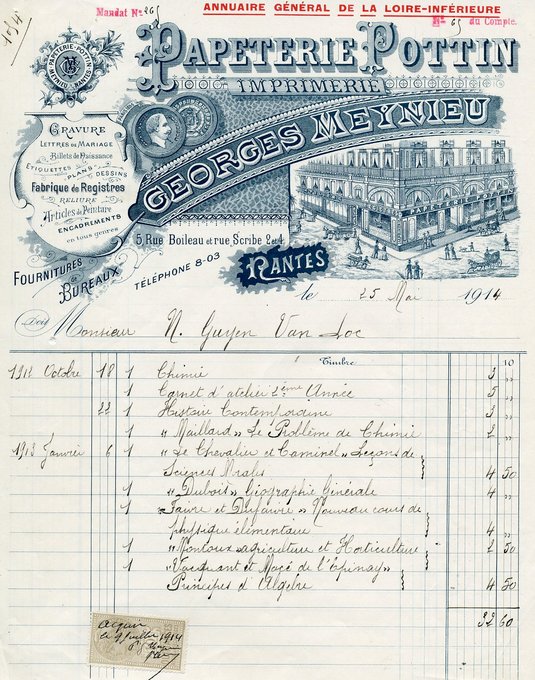 1914
Mandat N° 265
ANNUAIRE GÉNÉRAL DE LA LOIRE-INFÉRIEURE
N° 65 du Compte.
PAPETERIE-POTTIN
NANTES
PAPETERIE POTTIN
IMPRIMERIE
GEORGES MEYNIEU
GRAVURE
LETTRES DE MARIAGE
Billets de Naissance
ETIQUETTES
PLANS
DESSINS
Fabrique de Registres
RELIURE
Articles de Peinture
ENCADREMENTS
en tous genres
FOURNITURES
de
BUREAUX
5 Rue Boileau et rue Scribe 2 et 4
TÉLÉPHONE 8-03
NANTES
le 25 Mai 1914
Doit
Monsieur N. Guyen Van Loc
Timbre 10
1912 Octobre 18 1 Chimie 3 "
1 Carnet d'atelier 2ème Année 5 "
22 1 Histoire Contemporaine 3 "
1 "Maillard" Le Problème de Chimie 2 "
1913 Janvier 6 1 "Le Chevalier et Caminel" Leçons de
Sciences Nrales 4 50
1 "Dubois" Géographie Générale 4 "
1 "Faivre et Dufaivre" Nouveau cours de
physique élémentaire 4 "
1 "Montoux" agriculture et Horticulture 2 50
1 "Vacquant et Macé de l'Epinay"
Principes d'Algèbre 4 50
32 60
Acquit
le 9 Juillet 1914